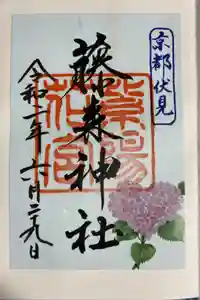 京都伏見
藤森神社
紫陽花宮
令和二年六月二十九日